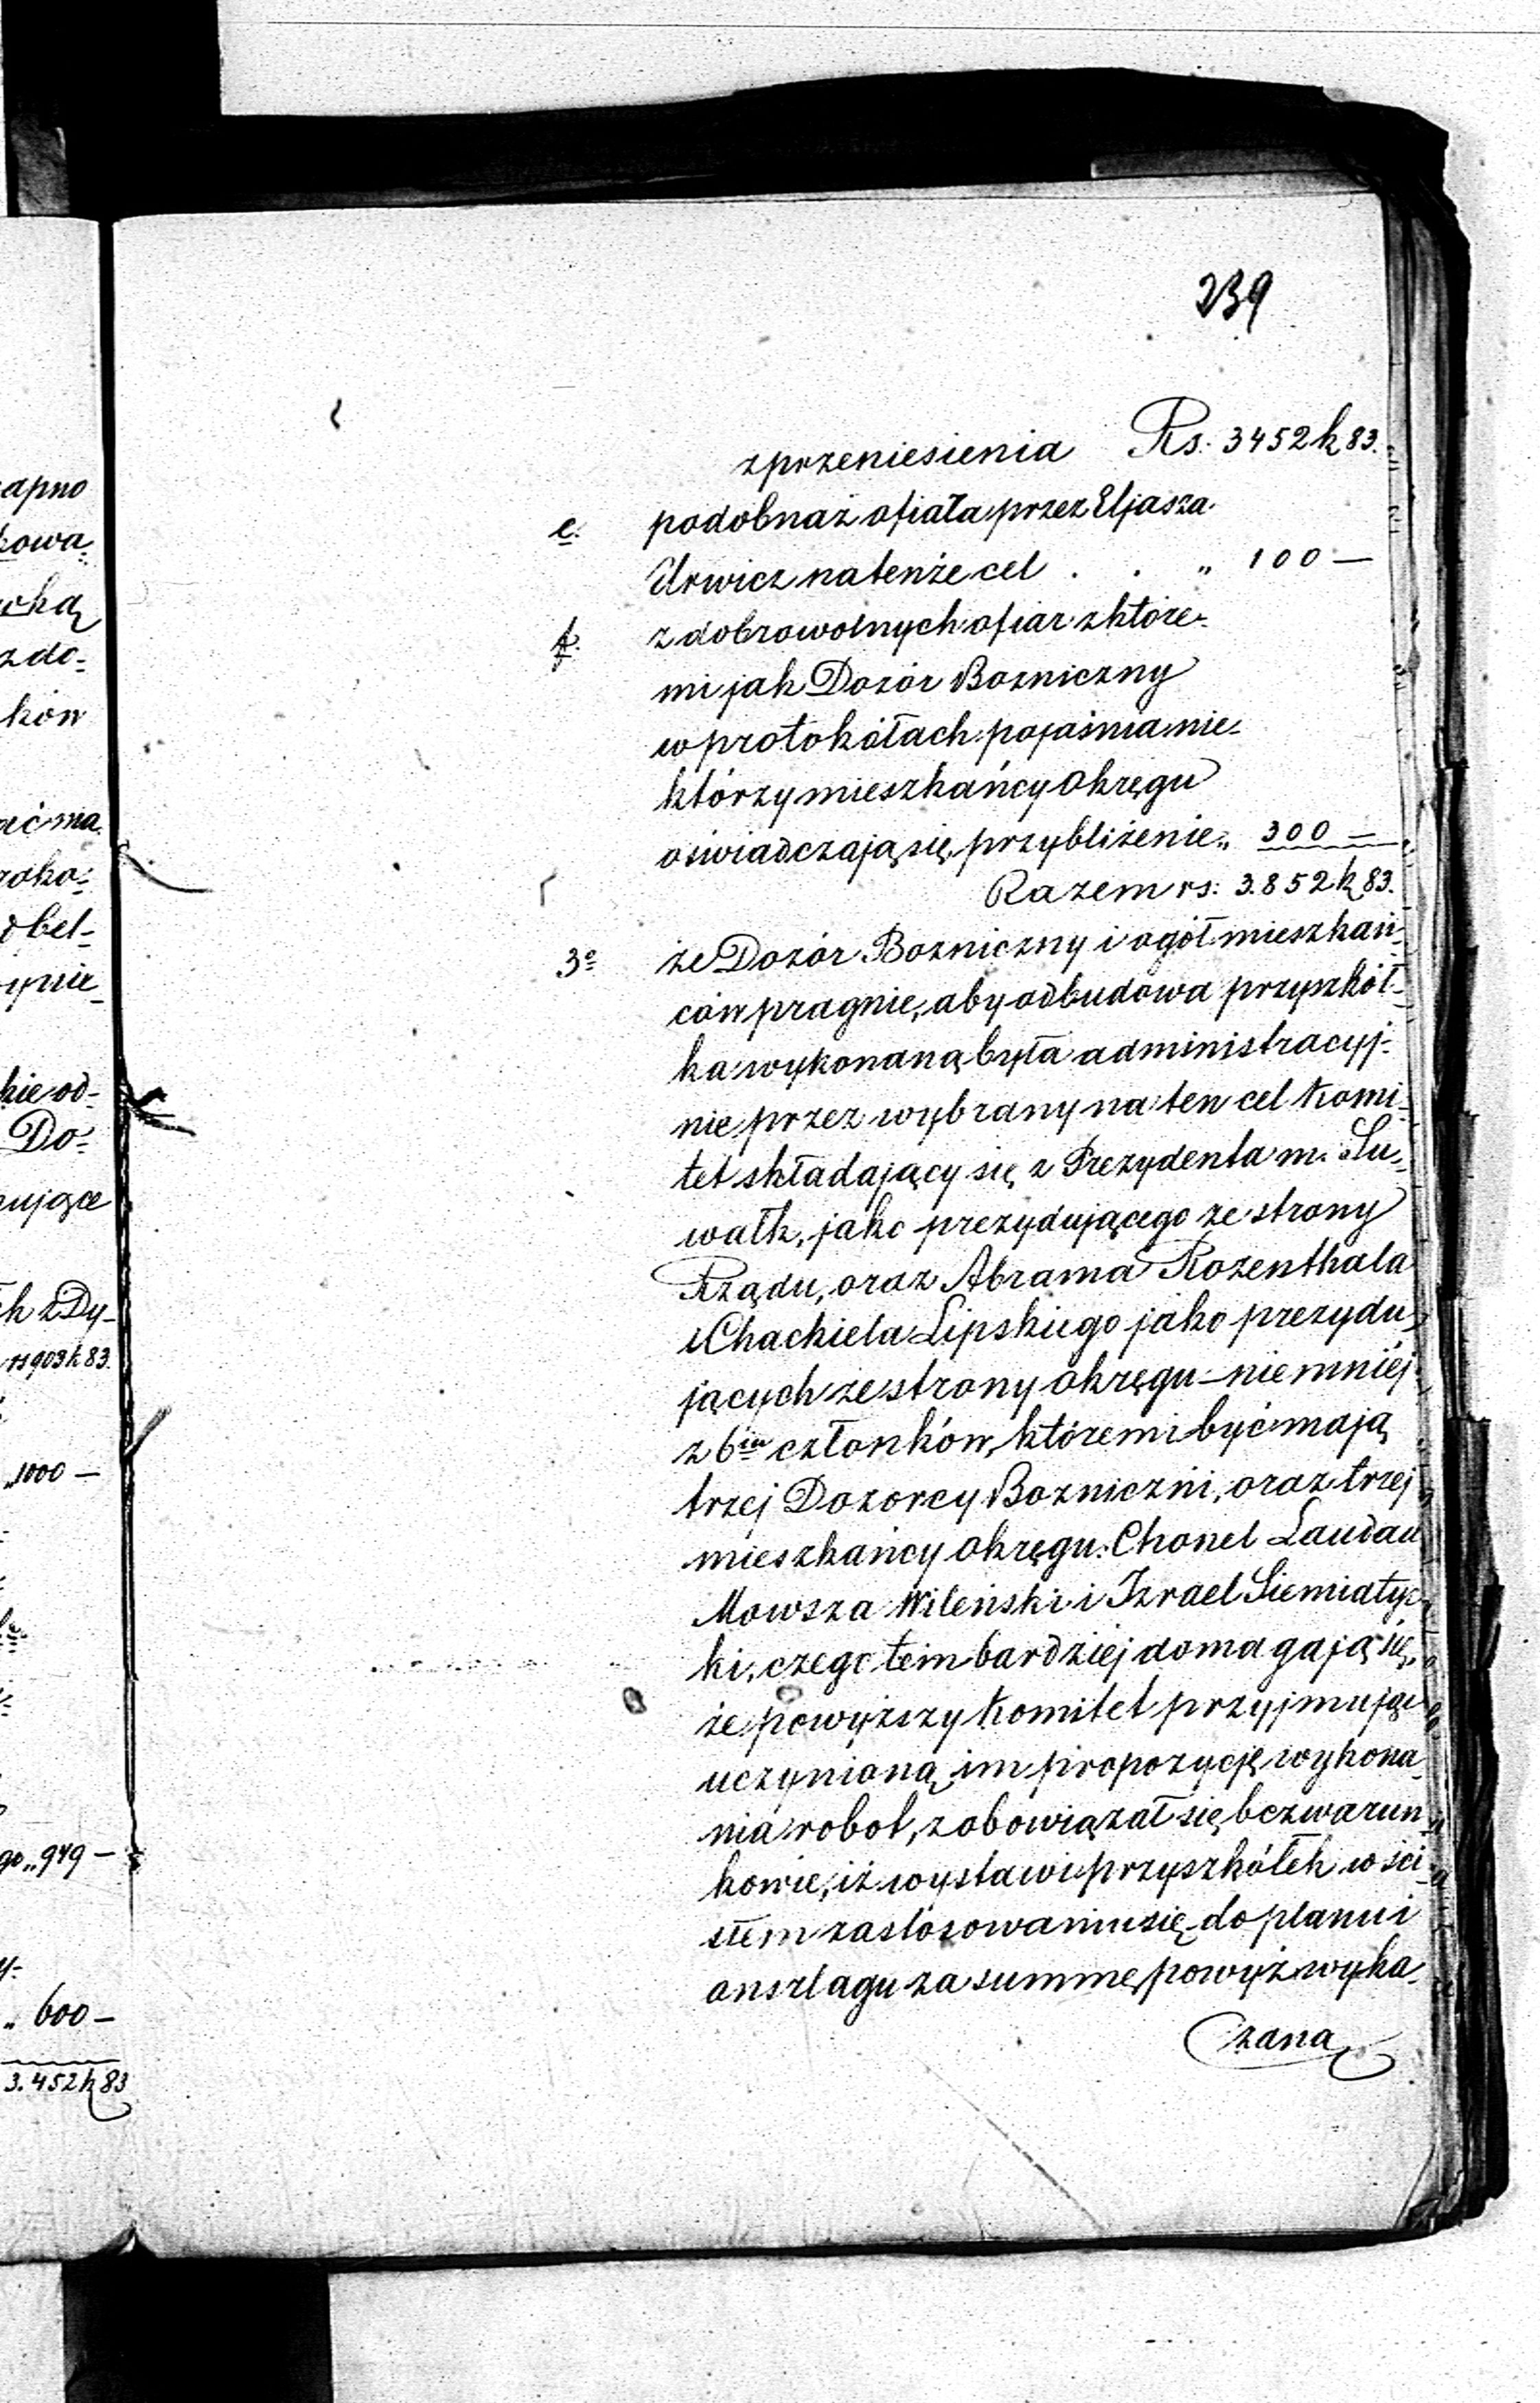 239
z przeniesienia Rs. 3452 k 83.
e. podobnaż ofiata przez Eljasza
Urwicz na tenże cel . . „ 100 —
f. z dobrowolnych ofiar z które-
mi jak Dozór Bozniczny
w protokółach pojaśnia nie-
którzy mieszkańcy Okręgu
oświadczają się, przybliżenie „ 300 —
Razem rs: 3.852 k 83.
3o że Dozór Bozniczny i ogół mieszkań-
ców pragnie, aby odbudowa przyszkół-
ka wykonaną była administracyj-
nie przez wybrany na ten cel Komi-
tet składający się z Prezydenta m. Su-
wałk, jako prezydującego ze strony
Rządu, oraz Abrama Rozenthala
i Chackiela Lipskiego jako prezydu-
jących ze strony Okręgu – niemniej
z 6iu członków, któremi być mają
trzej Dozorcy Bozniczni, oraz trzej
mieszkańcy Okręgu: Chonel Laudau
Mowsza Wileński i Izrael Siemiatyc-
ki, czego tem bardziej domagają się,
że powyższy Komitet przyjmując
uczynioną im propozycję wykona-
nia robot, zobowiązał się bezwarun-
kowie, iż wystawi przyszkółek w ści-
słem zastosowaniu się do planu i
anszlagu za summę powyż wyka-
zana
apno
kowa
cką
z do-
ków
ać ma
roko-
obel-
ynie-
kie od-
Do-
ujące
ch z Dy-
rs 903 k 83.
„ 1000 —
go „ 949 —
y-
„ 600 —
3.452 k 83